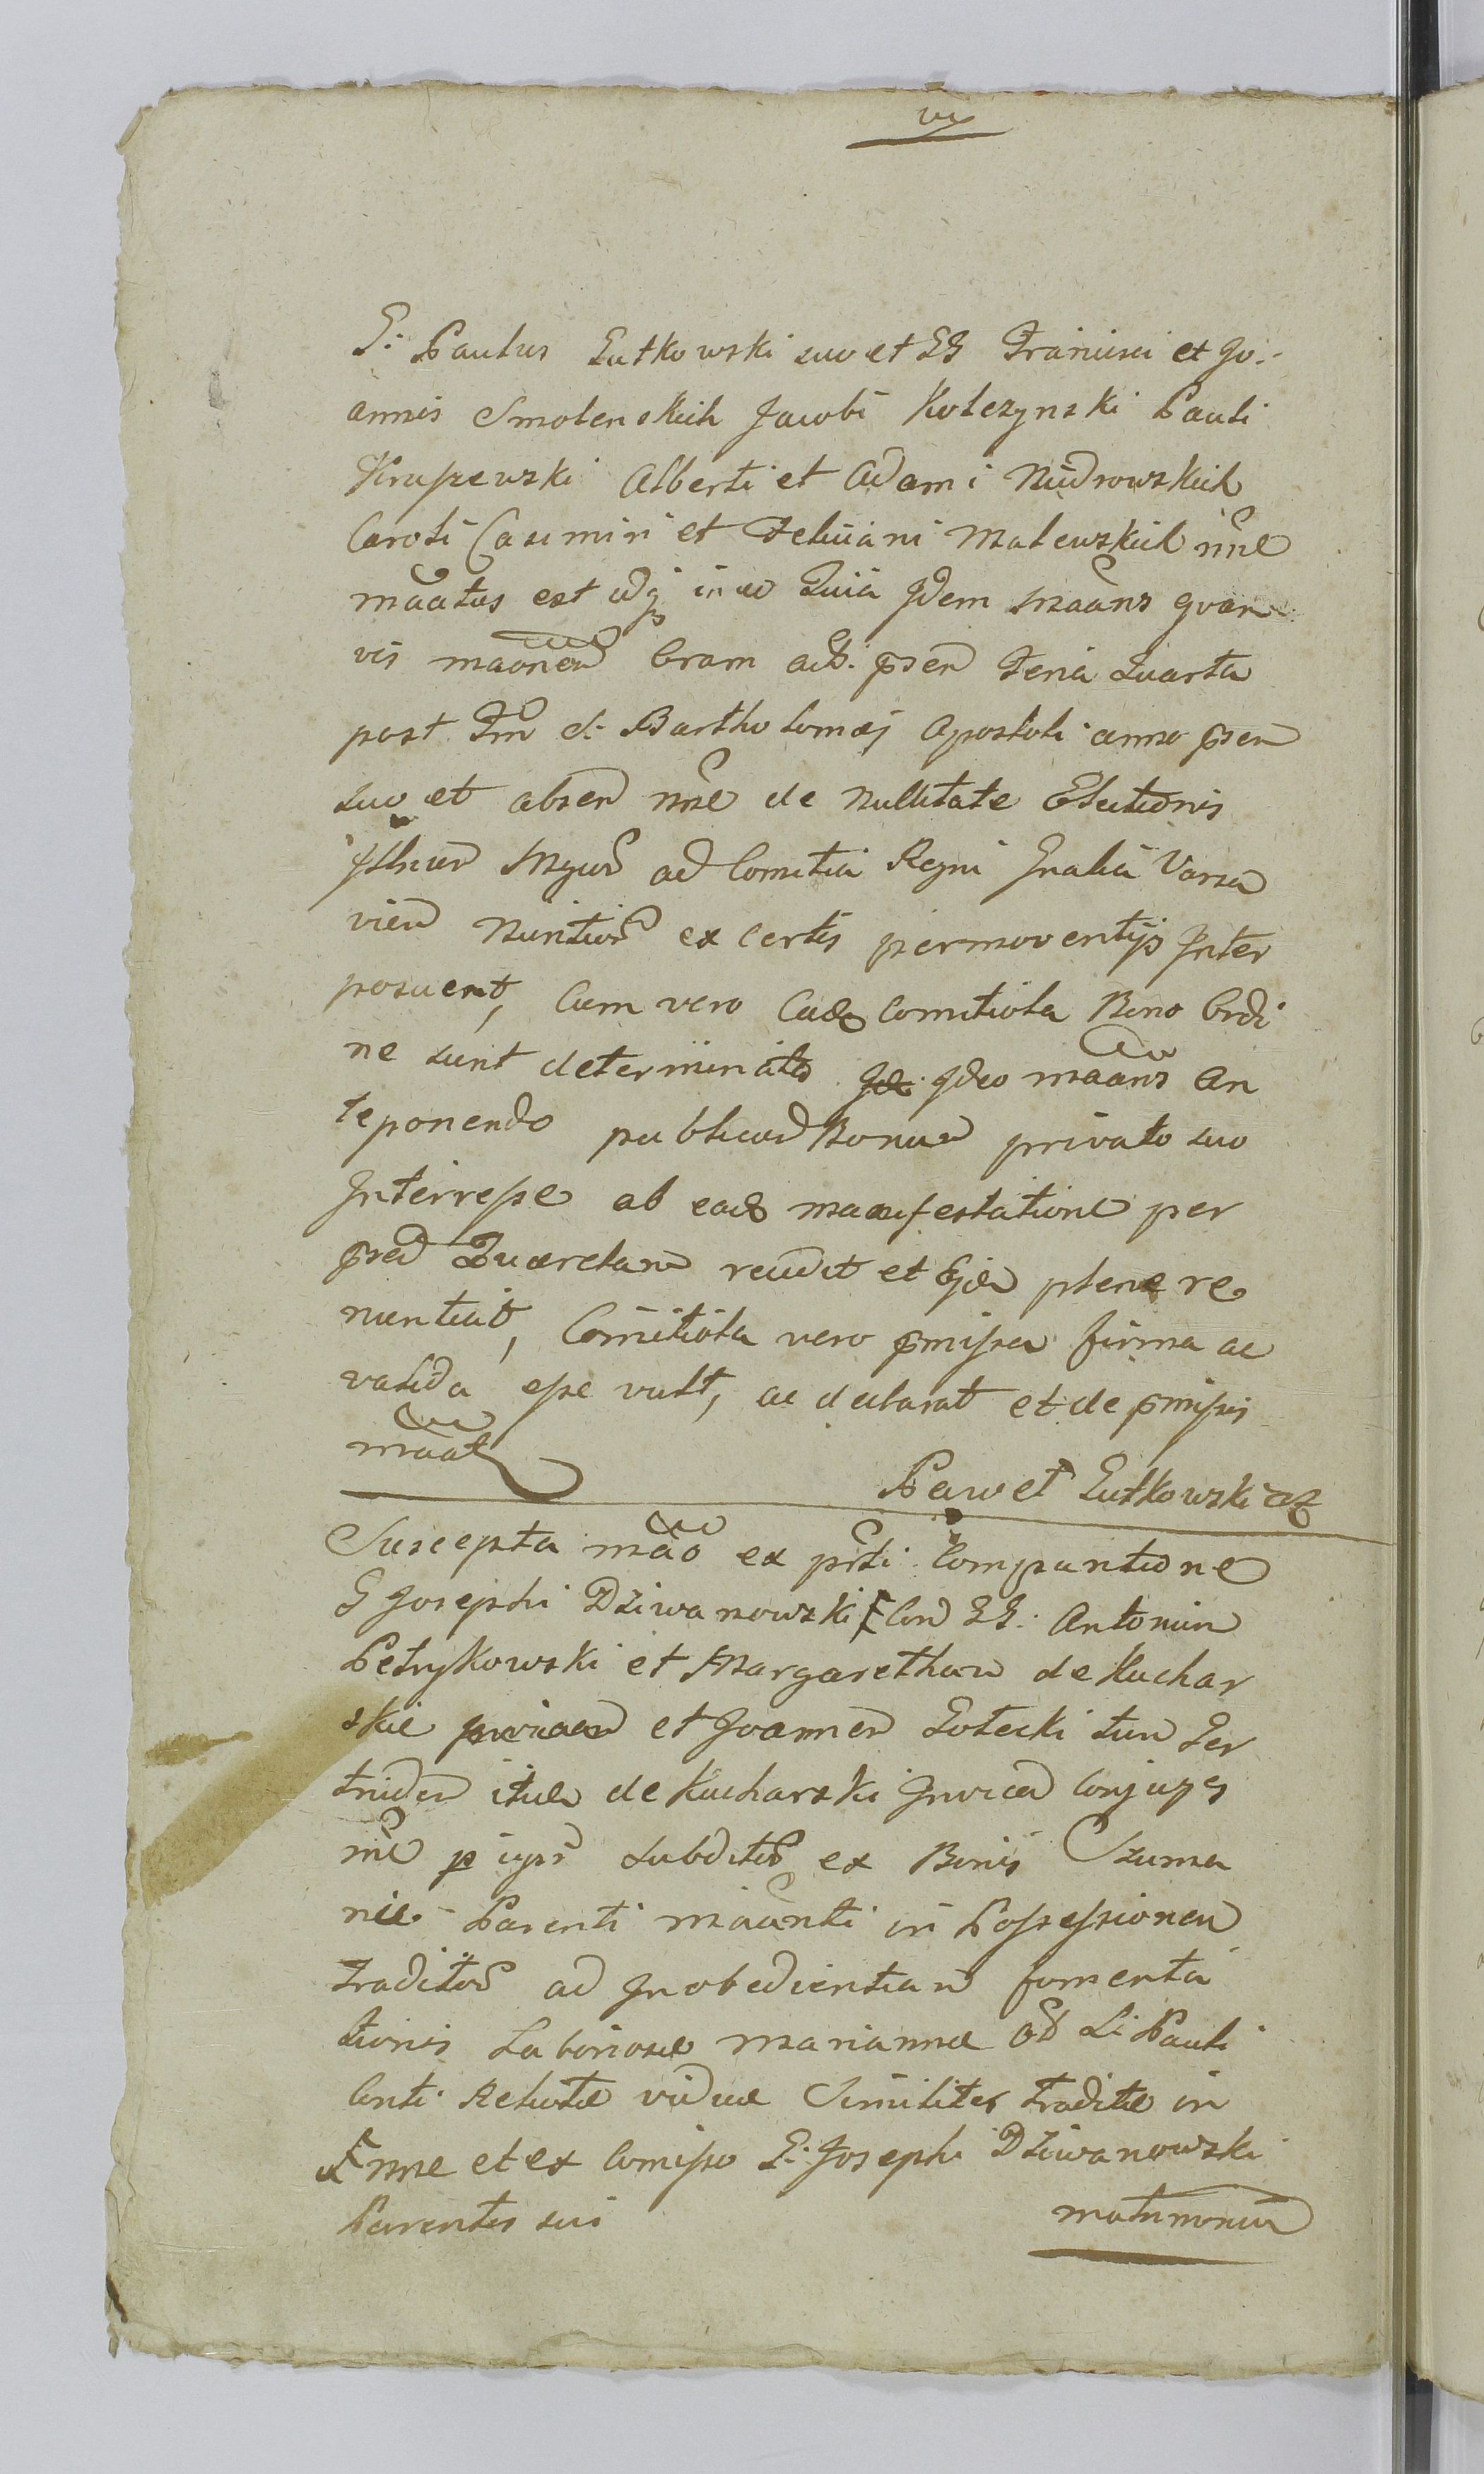 G: Paulus Lutkowski suo et GG Francisci et Jo-
annis Smolenskich Jacobi Kolczynski Pauli
Kruszewski Alberti et Adami Nidrowskich
Caroli Casimiri et Feliciani Malewskich nne
maatus est idq in eo Quia Idem maans quam
vis maonem Coram act. psen Feria Quarta
post Fm S. Bartholomæj Apostoli anno psen
suo et absen nne de Nullitate Electionis
ad Comitia Regni Gnalia Varsa
vien Nuntior ex certis permoventijs Inter
posuerit, Cum vero Eade Comitiola Bono Ordi
ne sunt determinata Ideo maans An
teponendo publicum Bonum privato suo
Interesse ab eade manifestatione per
psen Quærelam recedit et Ejde plene re
nuntiat, Comitiola vero pmissa firma ac
valida esse vult, ac declarat et de pmissis
maat
Paweł Lutkowski
Suscepta mao ex prti Compartione
G Josephi Dziwanowski Con GG: Antonium
Petrykowski et Margaretham de Kuchar
skie et Joannem Golecki tum Ger
truden itide de Kucharski Invicem Conjuges
nne subditor ex Bonis Szuma
nie Parenti maanti in Possessionem
traditor ad Inobedientiam fomenta
tionis Laboriosæ Mariannæ Ol Li Pauli
Relictæ viduæ Similiter traditæ in
nne et ex Comisso G: Josephi Dziwanowski
Parentis sui matrimonium